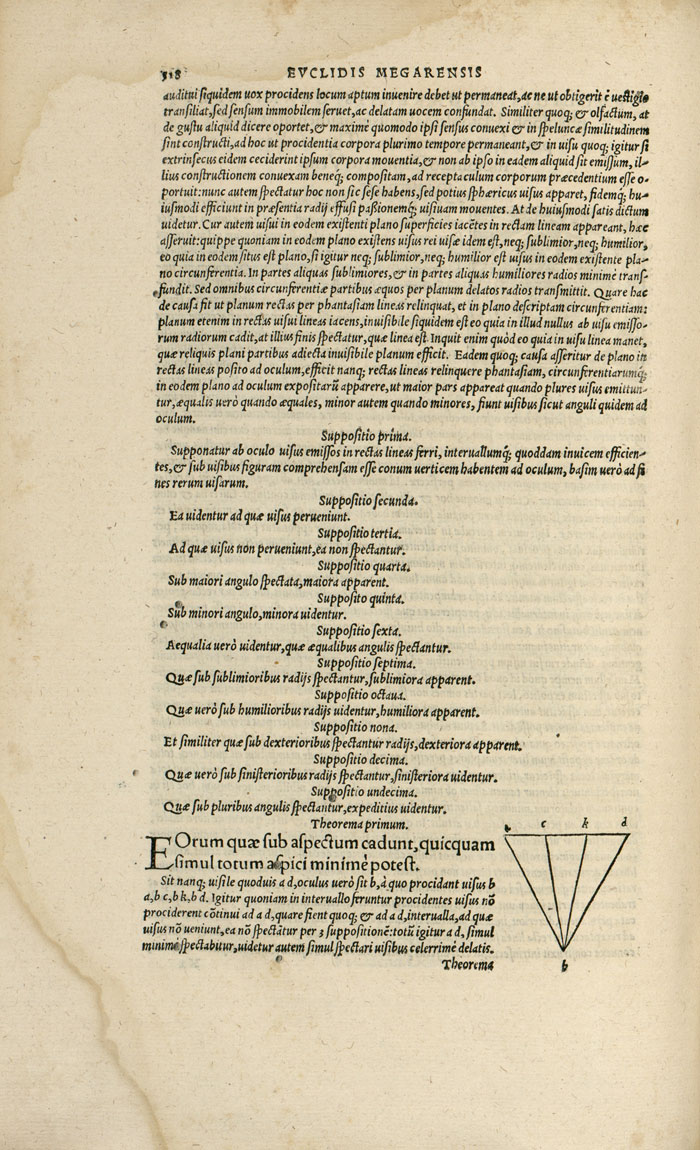 518 EVCLIDIS MEGARENSIS
auditui siquidem uox procidens locum aptum inuenire debet ut permaneat, ac ne ut obligerit è uestigio
transiliat, sed sensum immobilem seruet, ac delatam uocem confundat. Similiter quoq; & olfactum, at
de gustu aliquid dicere oportet, & maximè quomodo ipsi sensus conuexi & in speluncæ similitudinem
sint constructi, ad hoc ut procidentia corpora plurimo tempore permaneant, & in uisu quoq; igitur si
extrinsecus eidem ceciderint ipsum corpora mouentia, & non ab ipso in eadem aliquid sit emissum, il-
lius constructionem conuexam beneq; compositam, ad receptaculum corporum præcedentium esse o-
portuit: nunc autem spectatur hoc non sic sese habens, sed potius sphæricus uisus apparet, fidemq; hu-
iusmodi efficiunt in præsentia radij effusi paßionemq; uisiuam mouentes. At de huiusmodi satis dictum
uidetur. Cur autem uisui in eodem existenti plano superficies iacẽtes in rectam lineam appareant, hæc
asseruit: quippe quoniam in eodem plano existens uisus rei uisæ idem est, neq; sublimior, neq; humilior,
eo quia in eodem situs est plano, si igitur neq; sublimior, neq; humilior est uisus in eodem existente pla-
no circumferentia. In partes aliquas sublimiores, & in partes aliquas humiliores radios minimè trans-
fundit. Sed omnibus circumferentiæ partibus æquos per planum delatos radios transmittit. Quare hac
de causa fit ut planum rectas per phantasiam lineas relinquat, et in plano descriptam circumferentiam:
planum etenim in rectas uisui lineas iacens, inuisibile siquidem est eo quia in illud nullus ab uisu emisso-
rum radiorum cadit, at illius finis spectatur, quæ linea est. Inquit enim quòd eo quia in uisu linea manet,
quæ reliquis plani partibus adiecta inuisibile planum efficit. Eadem quoq; causa asseritur de plano in
rectas lineas posito ad oculum, efficit nanq; rectas lineas relinquere phantasiam, circumferentiarumq;
in eodem plano ad oculum expositarũ apparere, ut maior pars appareat quando plures uisus emittun-
tur, æqualis uerò quando æquales, minor autem quando minores, fiunt uisibus sicut anguli quidem ad
oculum.
Suppositio prima.
Supponatur ab oculo uisus emissos in rectas lineas ferri, interuallumq; quoddam inuicem efficien-
tes, & sub uisibus figuram comprehensam esse conum uerticem habentem ad oculum, basim uerò ad fi
nes rerum uisarum.
Suppositio secunda.
Ea uidentur ad quæ uisus perueniunt.
Suppositio tertia.
Ad quæ uisus non perueniunt, ea non spectantur.
Suppositio quarta.
Sub maiori angulo spectata, maiora apparent.
Supposito quinta.
Sub minori angulo, minora uidentur.
Suppositio sexta.
Aequalia uerò uidentur, quæ æqualibus angulis spectantur.
Suppositio septima.
Quæ sub sublimioribus radijs spectantur, sublimiora apparent.
Suppositio octaua.
Quæ uerò sub humilioribus radijs uidentur, humiliora apparent.
Suppositio nona.
Et similiter quæ sub dexterioribus spectantur radijs, dexteriora apparent.
Suppositio decima.
Quæ uerò sub sinisterioribus radijs spectantur, sinisteriora uidentur.
Suppositio undecima.
Quæ sub pluribus angulis spectantur, expeditius uidentur.
Theorema primum.
EOrum quæ sub aspectum cadunt, quicquam
simul totum aspici minimè potest.
Sit nanq; uisile quoduis a d, oculus uerò sit b, à quo procidant uisus b
a, b c, b k, b d. Igitur quoniam in interuallo feruntur procidentes uisus nõ
prociderent cõtinui ad a d, quare fient quoq; & ad a d, interualla, ad quæ
uisus nõ ueniunt, ea nõ spectãtur per 3 suppositionẽ: totũ igitur a d, simul
minimè spectabitur, uidetur autem simul spectari uisibus celerrimè delatis.
c k d
b
Theorema